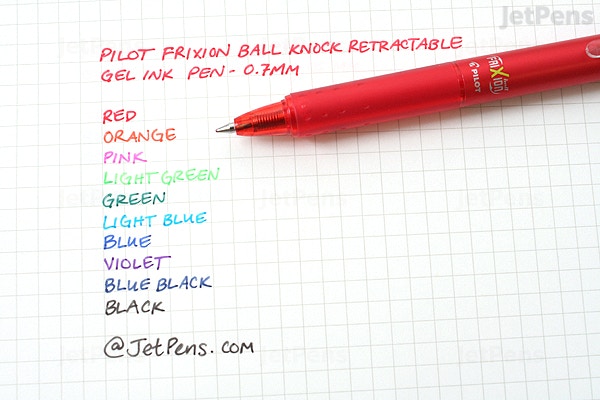 JetPens
PILOT FRIXION BALL KNOCK RETRACTABLE
GEL INK PEN - 0.7MM
FRiXion ball
PILOT
RED
ORANGE
PINK
LIGHT GREEN
GREEN
LIGHT BLUE
BLUE
VIOLET
BLUE BLACK
BLACK
@JetPens.com